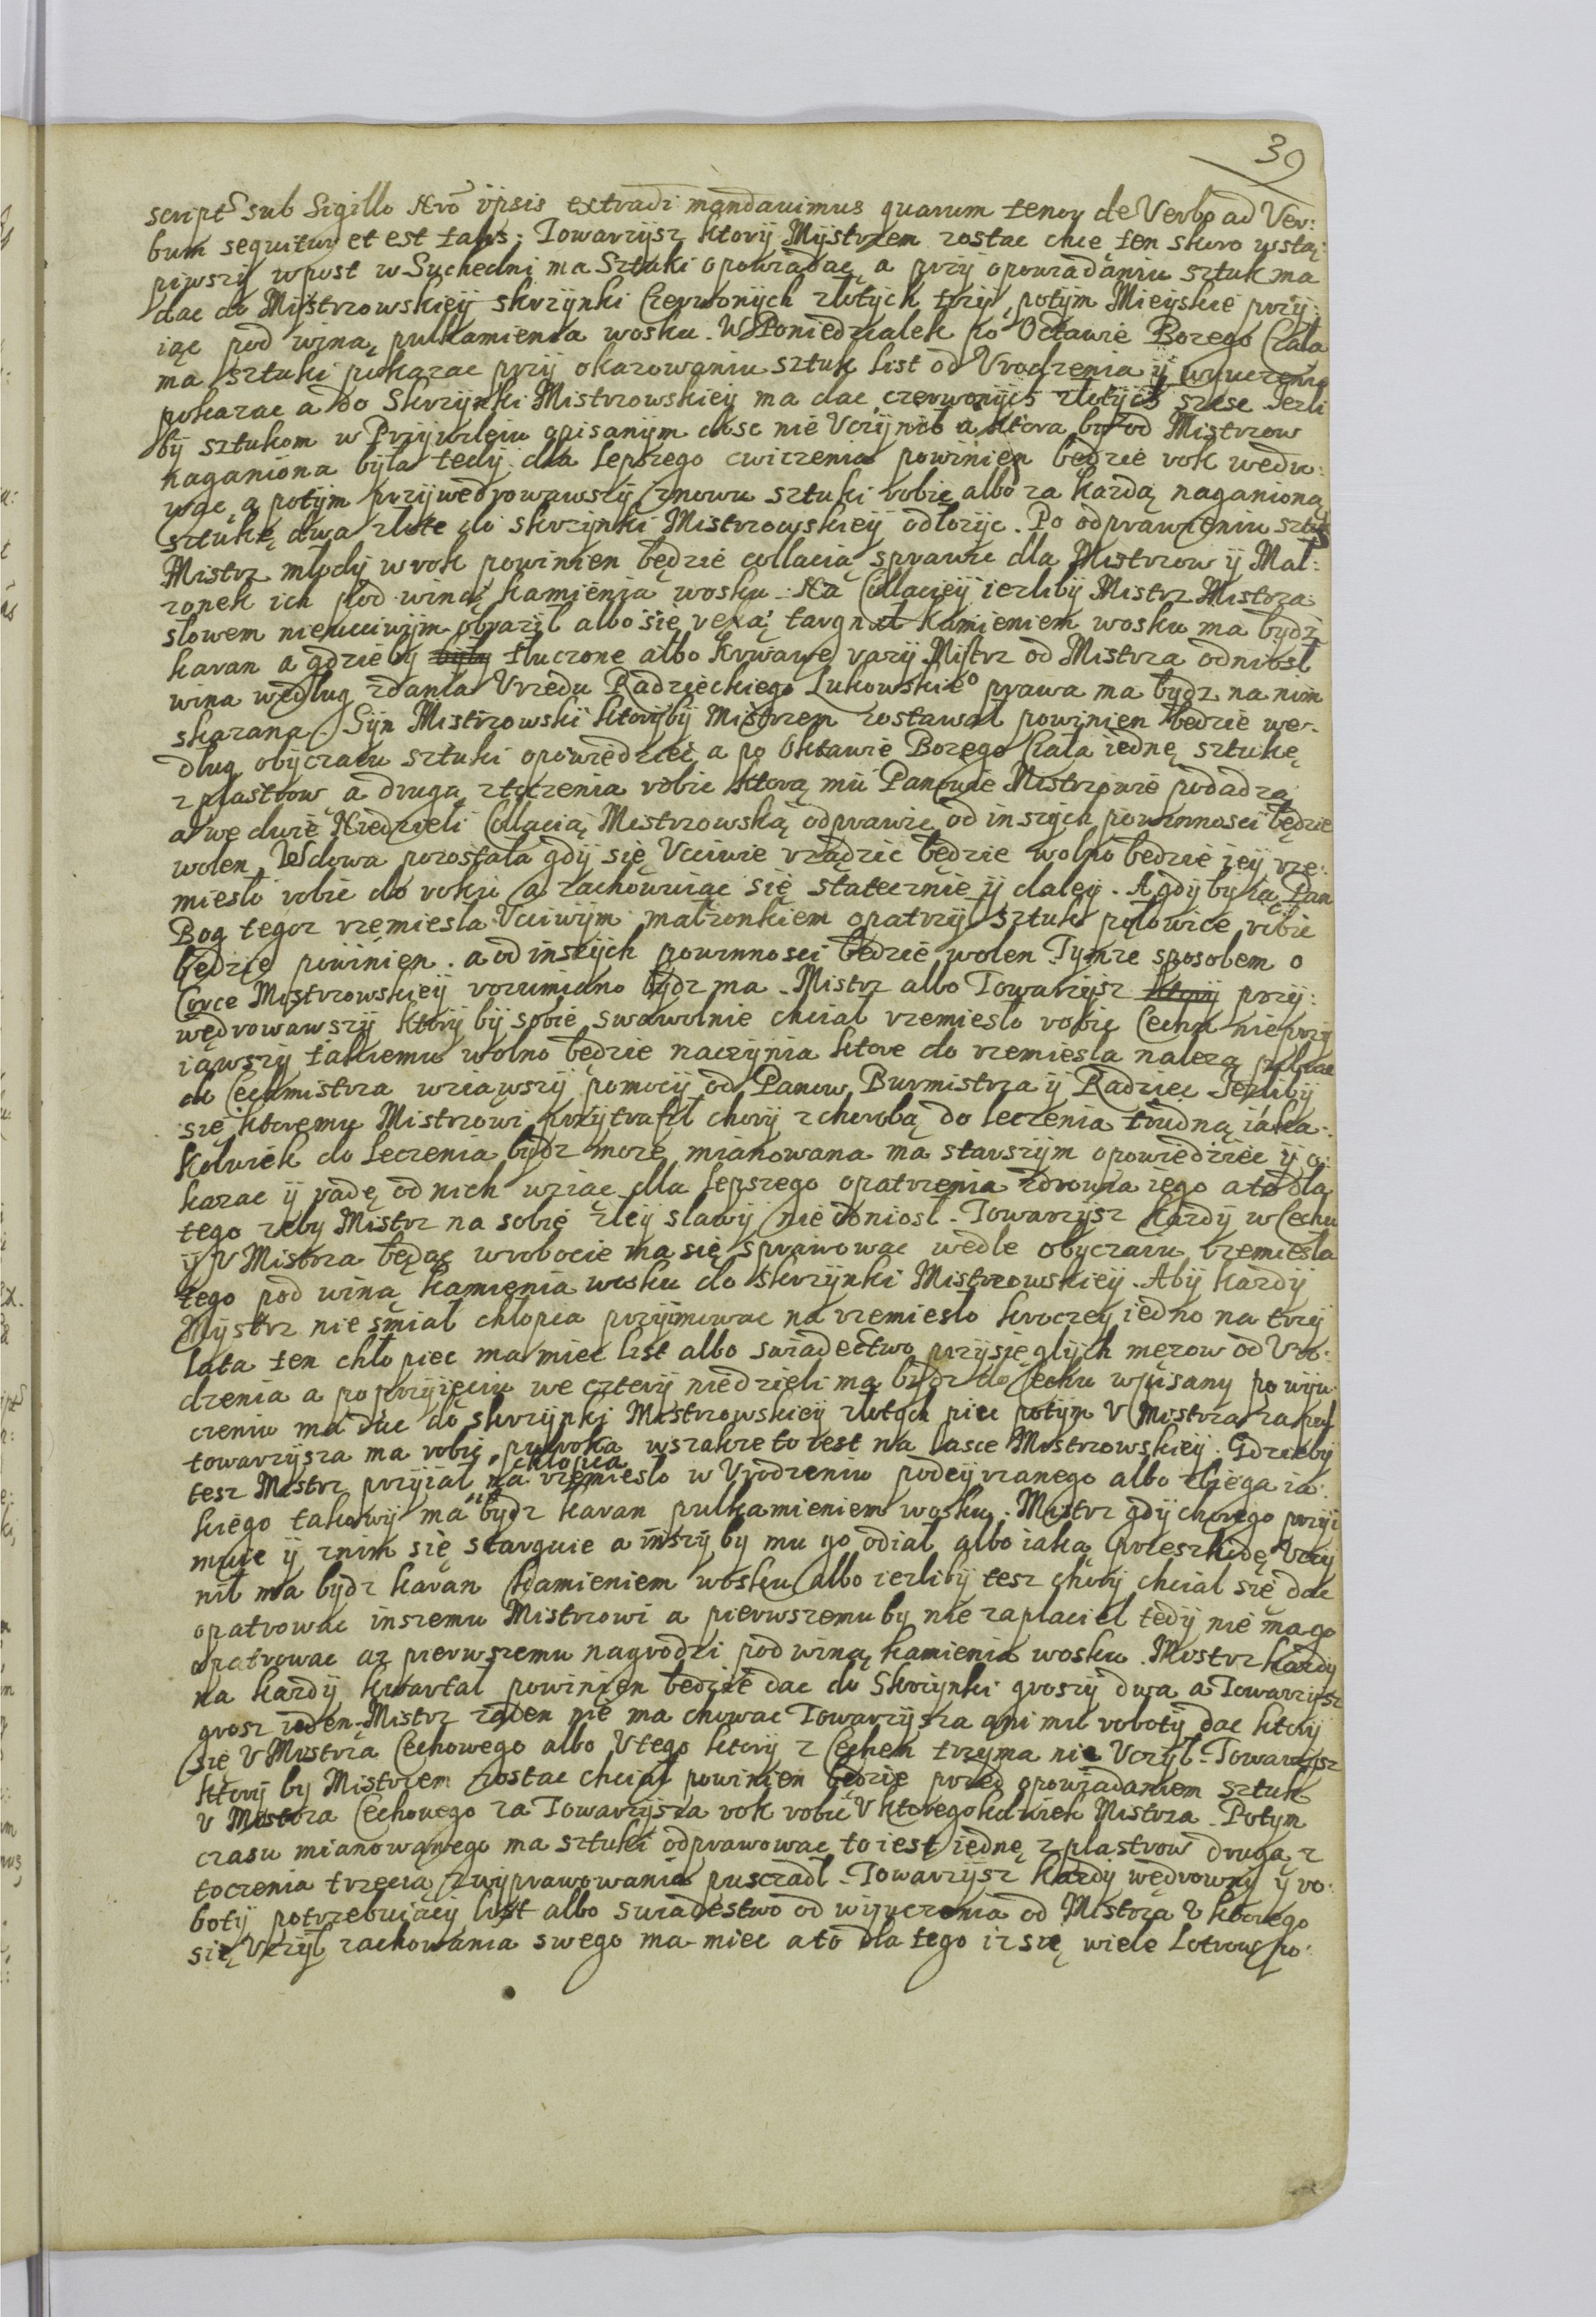 39
script sub Sigillo Nro ipsis extradi mandauimus quarum tenor de Verbo ad Ver:
bum sequitur et est talis: Towarzijsz ktorij Mijstrzem zostac chce ten skoro wstą:
piwszij wpost w Suchedni ma Sztuki opowiadac, a przij opowiadaniu sztuk ma
dac do Mijstrzowskieij skrzijnki Czerwonijch zlotijch trzij, potijm Mieijskie przij:
iąc pod winą pulkamienia wosku. W Poniedzialek po Octawie Bozego Ciala
ma sztuki pokazac przij okazowaniu sztuk list od Vrodzenia ij wijuczenia
pokazac a do Skrzijnki Mistrzowskieij ma dac czerwonijch zlotijch szesc. Jezli
bij sztukom w Przijwileiu opisanijm dosc nie Vczijnil a ktora bij od Mistrzow
naganiona bijla tedij dla lepszego cwiczenia powinien będzie rok wedro:
wac, a potijm przijwedrowawszij znowu sztuki robic albo za kazdą naganioną
sztukę dwa zlote do skrzijnki Mistrzowskieij odlozijc. Po odprawieniu sztuk
Mistrz mlodij w rok powinien będzie collacią sprawic dla Mistrzow ij Mal:
zonek ich pod winą kamienia wosku. Na Collacieij iezlibij Mistrz Mistrza
slowem nieucciwijm obrazil albo się ręką targnął kamieniem wosku ma bijdz
karan a gdzie bij tluczone albo krwawe razij Mistrz od Mistrza odniosl
wina według zdania Vrzedu Radzieckiego Lukowskieo prawa ma bijdz na nim
skazana. Sijn Mistrzowski ktorijbij Mistrzem zostawal powinien będzie we:
dlug obijczaiu sztuki opowiedziec a po Oktawie Bozego Ciala iednę sztukę
z plastrow a drugą ztoczenia robic ktorą mu Panowie Mistrzowie podadzą
a we dwie Niedzieli Collacią Mistrzowską odprawic od inszijch powinnosci będzie
wolen. Wdowa pozostala gdij się Vcciwie rządzic będzie wolno będzie ieij rze:
mieslo robic do roku a zachowuiąc się statecznie ij daleij. A gdij bij ią Pan
Bog tegoz rzemiesla Vcciwijm malzonkiem opatrzijl sztuk polowice robic
będzie powinien. a od inszijch powinnosci będzie wolen. Tijmze sposobem o
Corce Mistrzowskieij rozumiano bijdz ma. Mistrz albo Towarzijsz ktorij przij:
wędrowawszij ktorij bij sobie swawolnie chcial rzemieslo robic Cechu nieprzij
iąwszij takiemu wolno będzie naczijnia ktore do rzemiesla należą pobrac
do Cechmistrza wziąwszij pomocij od Panow Burmistrza ij Radziec. Jezlibij
się ktoremu Mistrzowi przijtrafil chorij z chorobą do leczenia trudną iaka:
kolwiek do leczenia bijdz moze mianowana ma starszijm opowiedziec ij o:
kazac ij radę od nich wziąc dla lepszego opatrzenia zdrowia iego a to dla
tego zeby Mistrz na sobie zleij slawij nie odniosl. Towarzijsz kazdij w Cechu
ij V Mistrza będąc w robocie ma się sprawowac wedle obyczaiu rzemiesla
tego pod winą kamienia wosku do skrzijnki Mistrzowskieij. Abij kazdij
Mijstrz nie smial chlopca przijmowac na rzemieslo kroczeij iedno na trzij
lata ten chlopiec ma miec list albo swiadectwo przijsięglijch męzow od Vro:
dzenia a po przijięciu we czterij niedzieli ma bijdz do Cechu wpisany po wiju:
czeniu ma dac do skrzijnki Mistrzowskieij zlotijch piec potijm V Mistrza za pul
towarzijsza ma robic pulroka wszakze to iest na lasce Mistrzowskieij. Gdziebij
tesz Mistrz przijial chlopca na rzemieslo w Vrodzeniu podeijrzanego albo zbiega ia:
kiego takowij ma bijdz karan pulkamieniem wosku. Mistrz gdij chorego przij
muie ij znim się starguie a inszij by mu go odial albo iaką przeszkodę Vczij
nil ma bijdz karan kamieniem wosku albo iezlibij tesz chorij chcial się dac
opatrowac inszemu Mistrzowi a pierwszemu by nie zaplaciel tedij nie ma go
opatrowac az pierwszemu nagrodzi pod winą kamienia wosku. Mistrz kazdij
na kazdij kwartal powinien będzie dac do Skrzijnki groszij dwa a Towarzijsz
grosz ieden. Mistrz zaden nie ma chowac Towarzijsza ani mu robotij dac ktorij
się V Mistrza Cechowego albo V tego ktorij z Cechem trzyma nie Vczijl. Towarzijsz
ktorij by Mistrzem zostac chcial powinien będzie przed opowiadaniem sztuk
V Mistrza Cechowego za Towarzijsza rok robic V ktoregokolwiek Mistrza. Potym
czasu mianowanego ma sztuki odprawowac to iest iednę z plastrow drugą z
toczenia trzecią z wijprawowania puszczadl. Towarzijsz kazdij wędrownij ij ro:
botij potrzebuiącij list albo swiadestwo od wijuczenia od Mistrza V ktorego
się Vczijl zachowania swego ma miec a to dla tego iz się wiele Lotrow po: